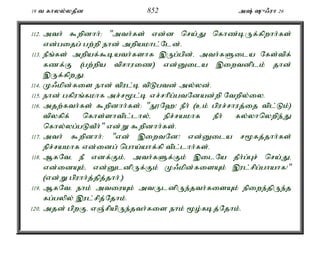 19 வ காலல்லதீன 852 அஷ் ஷுஃரா 26
112. அவர் கூறினார்: "அவர்கள் என்ன செய்து கொண்டிருக்கிறார்கள்
என்பதைப் பற்றி நான் அறியமாட்டேன்.
113. நீங்கள் அறியக்கூடியவர்களாக இருப்பின், அவர்களுடைய கேள்விக்
கணக்கு (பற்றிய விசாரணை) என்னுடைய இறைவனிடம் தான்
இருக்கிறது.
114. முஃமின்களை நான் விரட்டி விடுபவன் அல்லன்.
115. நான் பகிரங்கமாக அச்சமூட்டி எச்சரிப்பவனேயன்றி வேறில்லை.
116. அதற்கவர்கள் கூறினார்கள்: "நூஹே! நீர் (உம் பிரச்சாரத்தை விட்டும்)
விலகிக் கொள்ளாவிட்டால், நிச்சயமாக நீர் கல்லாலெறிந்து
கொல்லப்படுவீர்" என்று கூறினார்கள்.
117. அவர் கூறினார்: "என் இறைவனே! என்னுடைய சமூகத்தார்கள்
நிச்சயமாக என்னைப் பொய்யாக்கி விட்டார்கள்.
118. ஆகவே, நீ எனக்கும், அவர்களுக்கும் இடையே தீர்ப்புச் செய்து,
என்னையும், என்னுடனிருக்கும் முஃமின்களையும் இரட்சிப்பாயாக!"
(என்று பிரார்த்தித்தார்.)
119. ஆகவே, நாம் அவரையும் அவருடனிருந்தவர்களையும் நிறைந்திருந்த
கப்பலில் இரட்சித்தோம்.
120. அதன் பிறகு, எஞ்சியிருந்தவர்களை நாம் மூழ்கடித்தோம்.